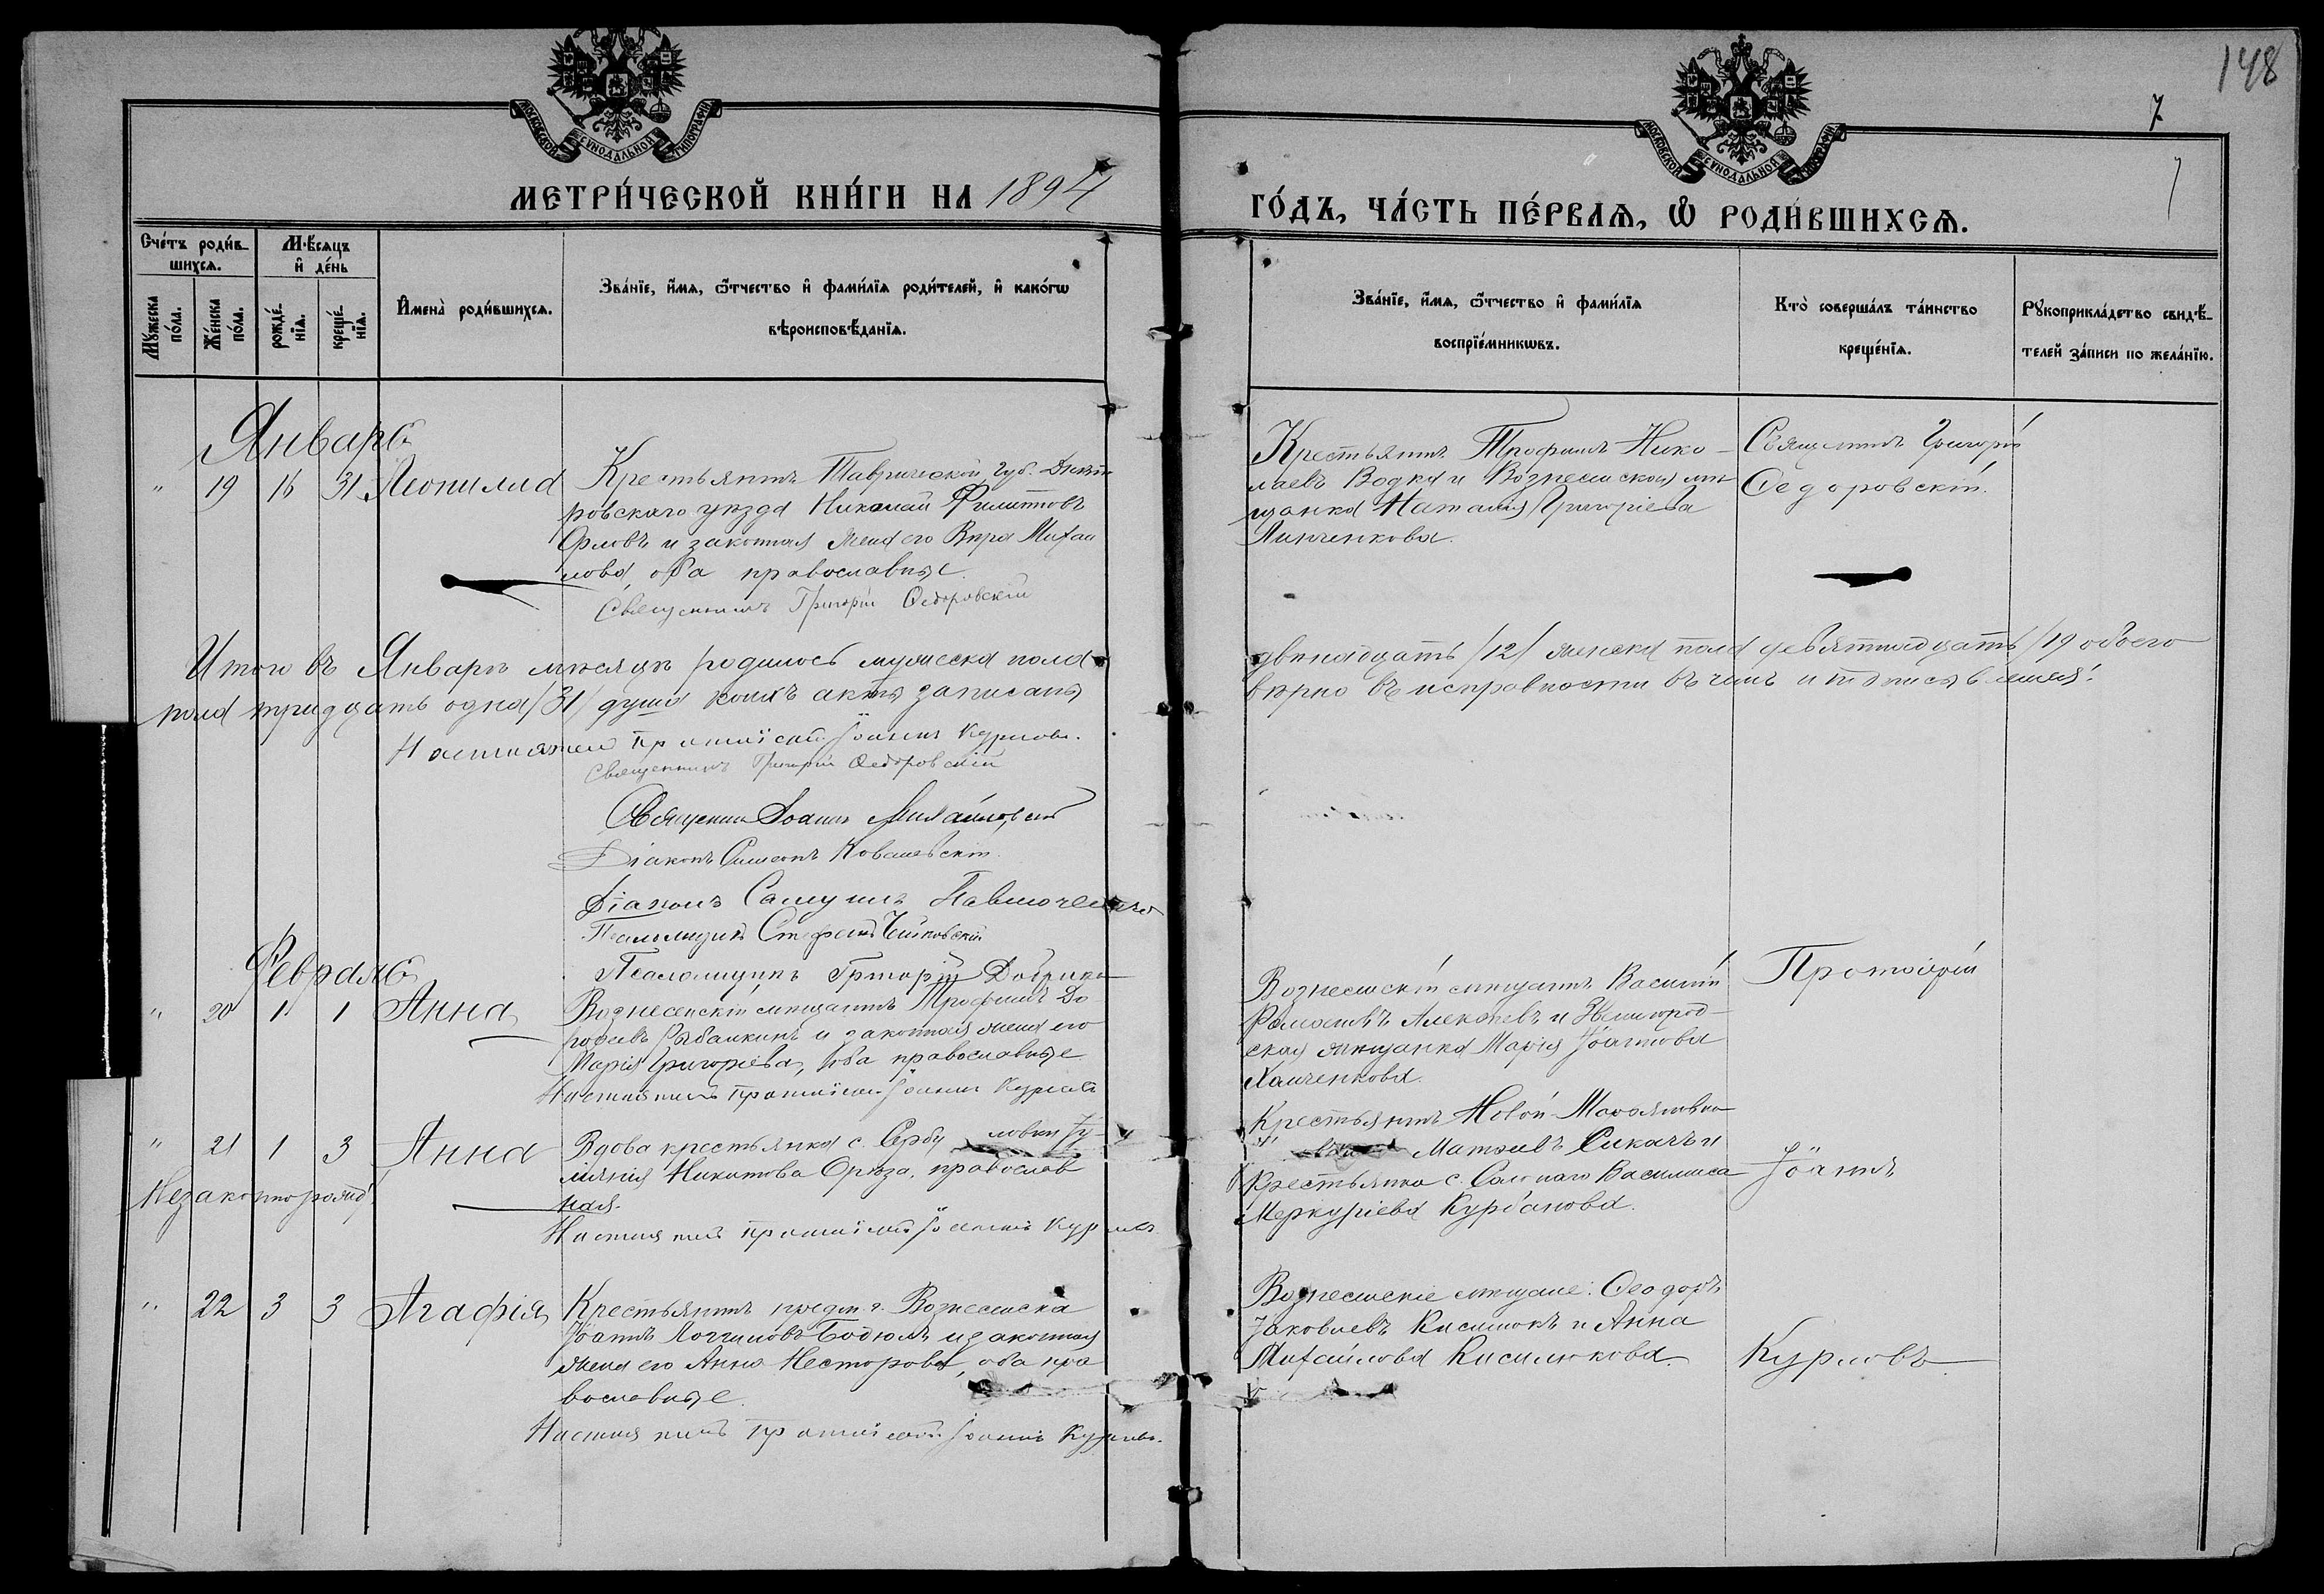 148
7
7
МОСКОВСКОЙ СѴНОДАЛЬНОЙ ТИПОГРАФІИ
МОСКОВСКОЙ СѴНОДАЛЬНОЙ ТИПОГРАФІИ
МЕТРИ́ЧЕСКОЙ КНИ́ГИ НА 1894
ГО́ДЪ, ЧА́СТЬ ПЕ́РВАѦ, Ѽ РОДИ́ВШИХСѦ.
Сче́тъ роди́в-
шихсѧ.
Мꙋ́жеска по́ла.
Же́нска по́ла.
М҆ѣсѧцъ
и҆ де́нь
рожде́-нїѧ.
креще́-нїѧ.
И҆мена̀ роди́вшихсѧ.
Зва́нїе, и҆́мѧ, ѻ҆́тчество и҆ фами́лїѧ роди́телей, и҆ како́гѡ
вѣроисповѣ́данїѧ.
Зва́нїе, и҆́мѧ, ѻ҆́тчество и҆ фами́лїѧ
воспрїе́мникѡвъ.
Кто̀ соверша́лъ та́инство
креще́нїѧ.
Рꙋкоприкла́дство свидѣ́-
телей за́писи по жела́нїю.
Январь
" 19 16 31 Леонилла
Крестьянинъ Таврической губ. Днѣп
ровскаго уѣзда Николай Филипповъ
Орловъ и законная жена его Вѣра Михаи
лова, оба православные.
Священникъ Григорій Ѳедоровскій
Крестьянинъ Трофимъ Нико-
лаевъ Водка и Вознесенская мѣ
щанка Наталія Григорьева
Линченкова.
Священникъ Григорій
Ѳедоровскій.
Итого въ Январѣ мѣсяцѣ родилось мужеска пола
двѣнадцать /12/ женска пола девятнадцать /19 обоего
пола тридцать одна /31/ душа коихъ акты записаны
вѣрно въ исправности въ чемъ и подписываемся:
Настоятель Протоіерей Іоаннъ Курловъ.
Священникъ Григорій Ѳедоровскій
Священникъ Іоаннъ Михайловскій
Діаконъ Симеонъ Ковалевскій.
Діаконъ Самуилъ Павлюченко
Псаломщикъ Стефанъ
Псаломщикъ Григорій
Февраль
" 20 1 1 Анна
Вознесенскій мѣщанинъ Трофимъ До
рофеевъ Рыбалкинъ и законная жена его
Марія Григорьева, оба православные
Настоятель Протоіерей Іоаннъ Курловъ
Вознесенскій мѣщанинъ Василій
Алексѣевъ и
ская мѣщанка Марія Іоаннова
Ханченкова.
Протоіерей
" 21 1 3 Анна
Незаконнорожд.
Вдова крестьянка с.
Никитова православ
ная.
Настоятель Протоіерей Іоаннъ Курловъ
Крестьянинъ Новой
Матѳеевъ Сикачъ и
Крестьянка с. Василиса
Меркуріева Курбанова.
Іоаннъ
" 22 3 3 Агафія
Крестьянинъ предм. г. Вознесенска
Іоаннъ Логгиновъ Бодюлъ и законная
жена его Анна Несторова, оба пра
вославные.
Настоятель Протоіерей Іоаннъ Курловъ.
Вознесенскіе мѣщане: Ѳеодоръ
Іаковлевъ Кисилюкъ и Анна
Михайлова Кисилюкова.
Курловъ